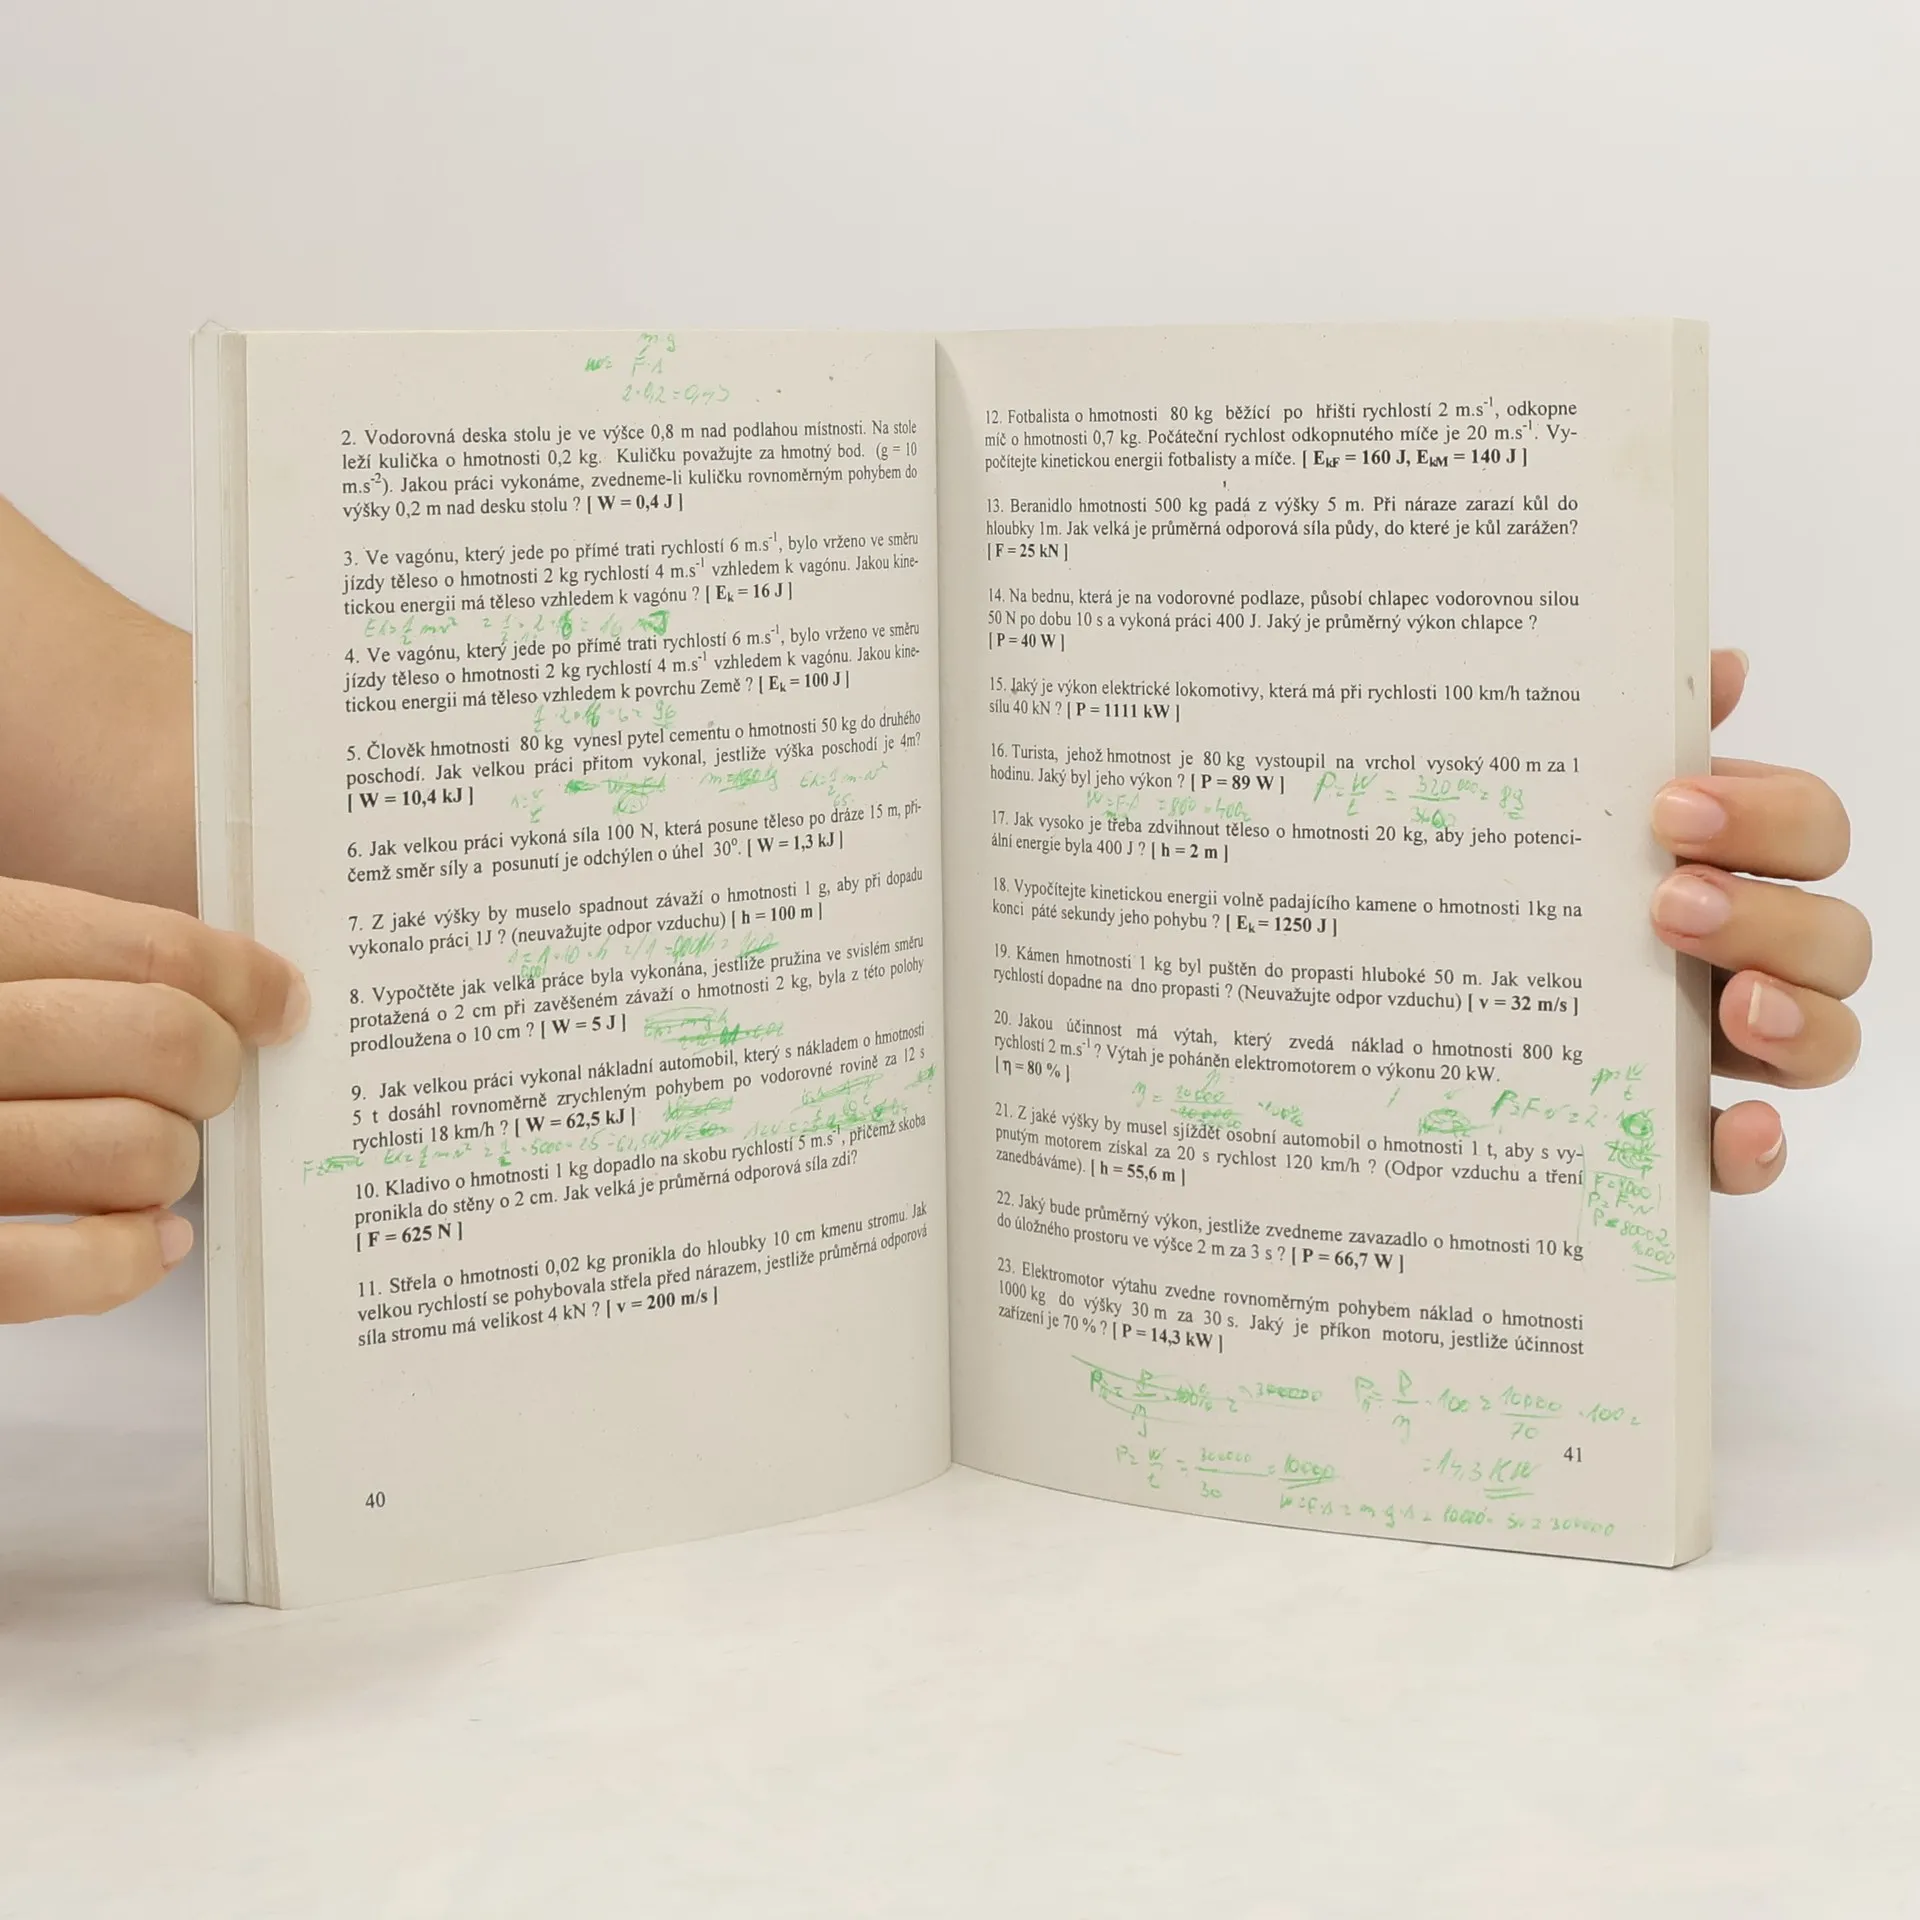 m·g
F·s
2. Vodorovná deska stolu je ve výšce 0,8 m nad podlahou místnosti. Na stole
leží kulička o hmotnosti 0,2 kg. Kuličku považujte za hmotný bod. (g = 10
m.s⁻²). Jakou práci vykonáme, zvedneme-li kuličku rovnoměrným pohybem do
výšky 0,2 m nad desku stolu ? [ W = 0,4 J ]
3. Ve vagónu, který jede po přímé trati rychlostí 6 m.s⁻¹, bylo vrženo ve směru
jízdy těleso o hmotnosti 2 kg rychlostí 4 m.s⁻¹ vzhledem k vagónu. Jakou kine-
tickou energii má těleso vzhledem k vagónu ? [ Eₖ = 16 J ]
4. Ve vagónu, který jede po přímé trati rychlostí 6 m.s⁻¹, bylo vrženo ve směru
jízdy těleso o hmotnosti 2 kg rychlostí 4 m.s⁻¹ vzhledem k vagónu. Jakou kine-
tickou energii má těleso vzhledem k povrchu Země ? [ Eₖ = 100 J ]
5. Člověk hmotnosti 80 kg vynesl pytel cementu o hmotnosti 50 kg do druhého
poschodí. Jak velkou práci přitom vykonal, jestliže výška poschodí je 4m?
[ W = 10,4 kJ ]
6. Jak velkou práci vykoná síla 100 N, která posune těleso po dráze 15 m, při-
čemž směr síly a posunutí je odchýlen o úhel 30⁰. [ W = 1,3 kJ ]
7. Z jaké výšky by muselo spadnout závaží o hmotnosti 1 g, aby při dopadu
vykonalo práci 1J ? (neuvažujte odpor vzduchu) [ h = 100 m ]
8. Vypočtěte jak velká práce byla vykonána, jestliže pružina ve svislém směru
protažená o 2 cm při zavěšeném závaží o hmotnosti 2 kg, byla z této polohy
prodloužena o 10 cm ? [ W = 5 J ]
9. Jak velkou práci vykonal nákladní automobil, který s nákladem o hmotnosti
5 t dosáhl rovnoměrně zrychleným pohybem po vodorovné rovině za 12 s
rychlosti 18 km/h ? [ W = 62,5 kJ ]
10. Kladivo o hmotnosti 1 kg dopadlo na skobu rychlostí 5 m.s⁻¹, přičemž skoba
pronikla do stěny o 2 cm. Jak velká je průměrná odporová síla zdi?
[ F = 625 N ]
11. Střela o hmotnosti 0,02 kg pronikla do hloubky 10 cm kmenu stromu. Jak
velkou rychlostí se pohybovala střela před nárazem, jestliže průměrná odporová
síla stromu má velikost 4 kN ? [ v = 200 m/s ]
40
12. Fotbalista o hmotnosti 80 kg běžící po hřišti rychlostí 2 m.s⁻¹, odkopne
míč o hmotnosti 0,7 kg. Počáteční rychlost odkopnutého míče je 20 m.s⁻¹. Vy-
počítejte kinetickou energii fotbalisty a míče. [ EₖF = 160 J, EₖM = 140 J ]
13. Beranidlo hmotnosti 500 kg padá z výšky 5 m. Při náraze zarazí kůl do
hloubky 1m. Jak velká je průměrná odporová síla půdy, do které je kůl zarážen?
[ F = 25 kN ]
14. Na bednu, která je na vodorovné podlaze, působí chlapec vodorovnou silou
50 N po dobu 10 s a vykoná práci 400 J. Jaký je průměrný výkon chlapce ?
[ P = 40 W ]
15. Jaký je výkon elektrické lokomotivy, která má při rychlosti 100 km/h tažnou
sílu 40 kN ? [ P = 1111 kW ]
16. Turista, jehož hmotnost je 80 kg vystoupil na vrchol vysoký 400 m za 1
hodinu. Jaký byl jeho výkon ? [ P = 89 W ]
17. Jak vysoko je třeba zdvihnout těleso o hmotnosti 20 kg, aby jeho potenci-
ální energie byla 400 J ? [ h = 2 m ]
18. Vypočítejte kinetickou energii volně padajícího kamene o hmotnosti 1kg na
konci páté sekundy jeho pohybu ? [ Eₖ = 1250 J ]
19. Kámen hmotnosti 1 kg byl puštěn do propasti hluboké 50 m. Jak velkou
rychlostí dopadne na dno propasti ? (Neuvažujte odpor vzduchu) [ v = 32 m/s ]
20. Jakou účinnost má výtah, který zvedá náklad o hmotnosti 800 kg
rychlostí 2 m.s⁻¹ ? Výtah je poháněn elektromotorem o výkonu 20 kW.
[ η = 80 % ]
21. Z jaké výšky by musel sjíždět osobní automobil o hmotnosti 1 t, aby s vy-
pnutým motorem získal za 20 s rychlost 120 km/h ? (Odpor vzduchu a tření
zanedbáváme). [ h = 55,6 m ]
22. Jaký bude průměrný výkon, jestliže zvedneme zavazadlo o hmotnosti 10 kg
do úložného prostoru ve výšce 2 m za 3 s ? [ P = 66,7 W ]
23. Elektromotor výtahu zvedne rovnoměrným pohybem náklad o hmotnosti
1000 kg do výšky 30 m za 30 s. Jaký je příkon motoru, jestliže účinnost
zařízení je 70 % ? [ P = 14,3 kW ]
= 14,3 KW
41